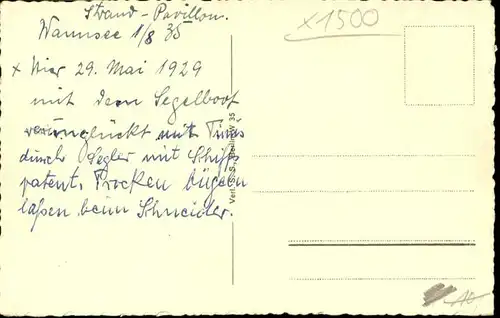 Strand-Pavillon.
Wannsee 1/8 35
x Hier 29. Mai 1929
mit dem Segelboot
verunglückt mit
durch Segler mit Schiffs
patent. Trocken bügeln
laßen beim Schneider.
x1500
Berlin SW 35